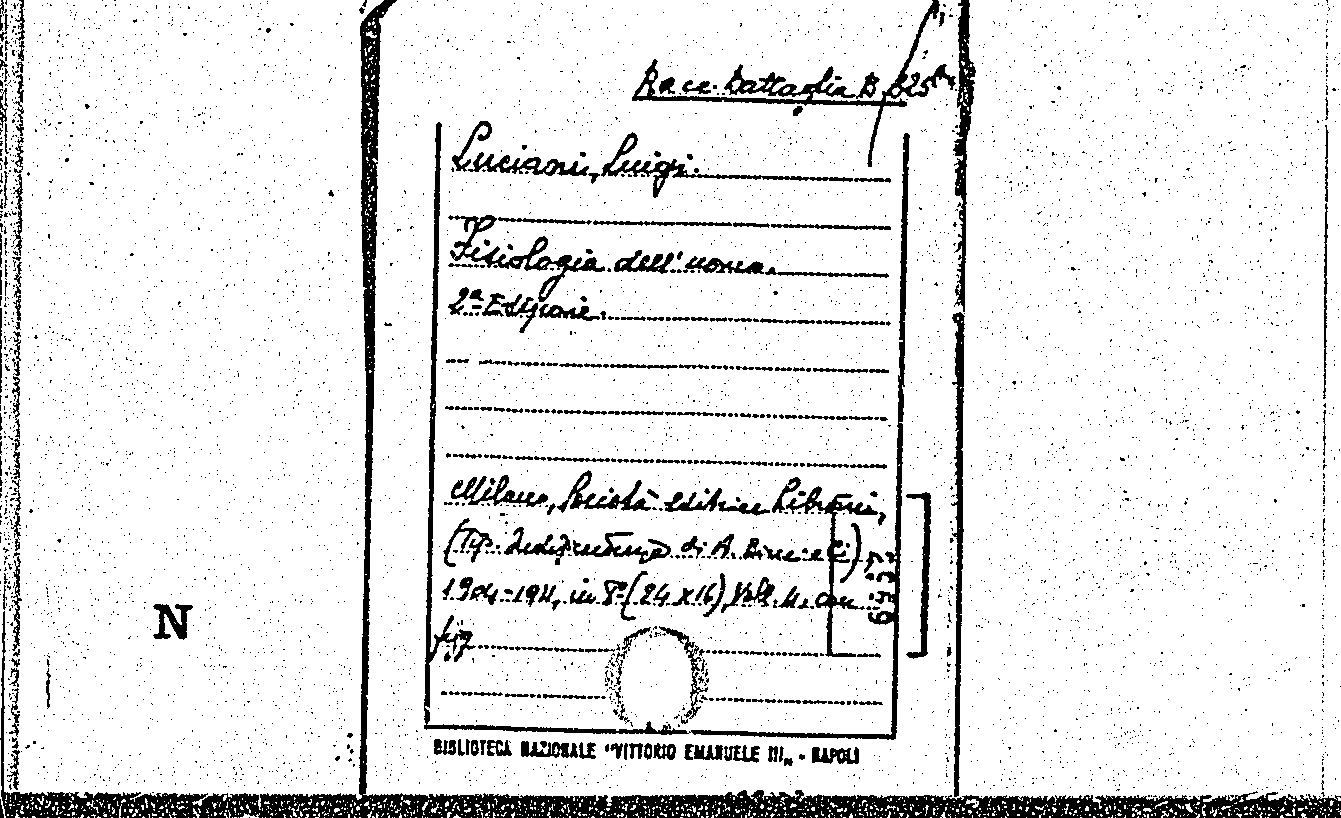 Racc. Battaglia B. 825
Luciani, Luigi.
Fisiologia dell'uomo.
2ª Edizione.
Milano, Società editrice Libraria,
(Tip. Indipendenza di A. e C.)
1904-1911, in 8° (24 x 16), Voll. 4, con
fig.
N
BIBLIOTECA NAZIONALE "VITTORIO EMANUELE III„ - NAPOLI